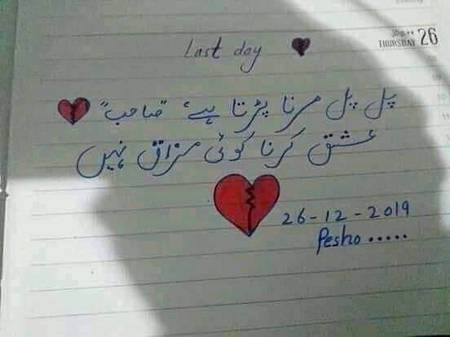 Last day
THURSDAY 26
پل پل مرنا پڑتا ہے، "صاحب"
عشق کرنا کوئی مزاق نہیں
26-12-2019
Pesho.....